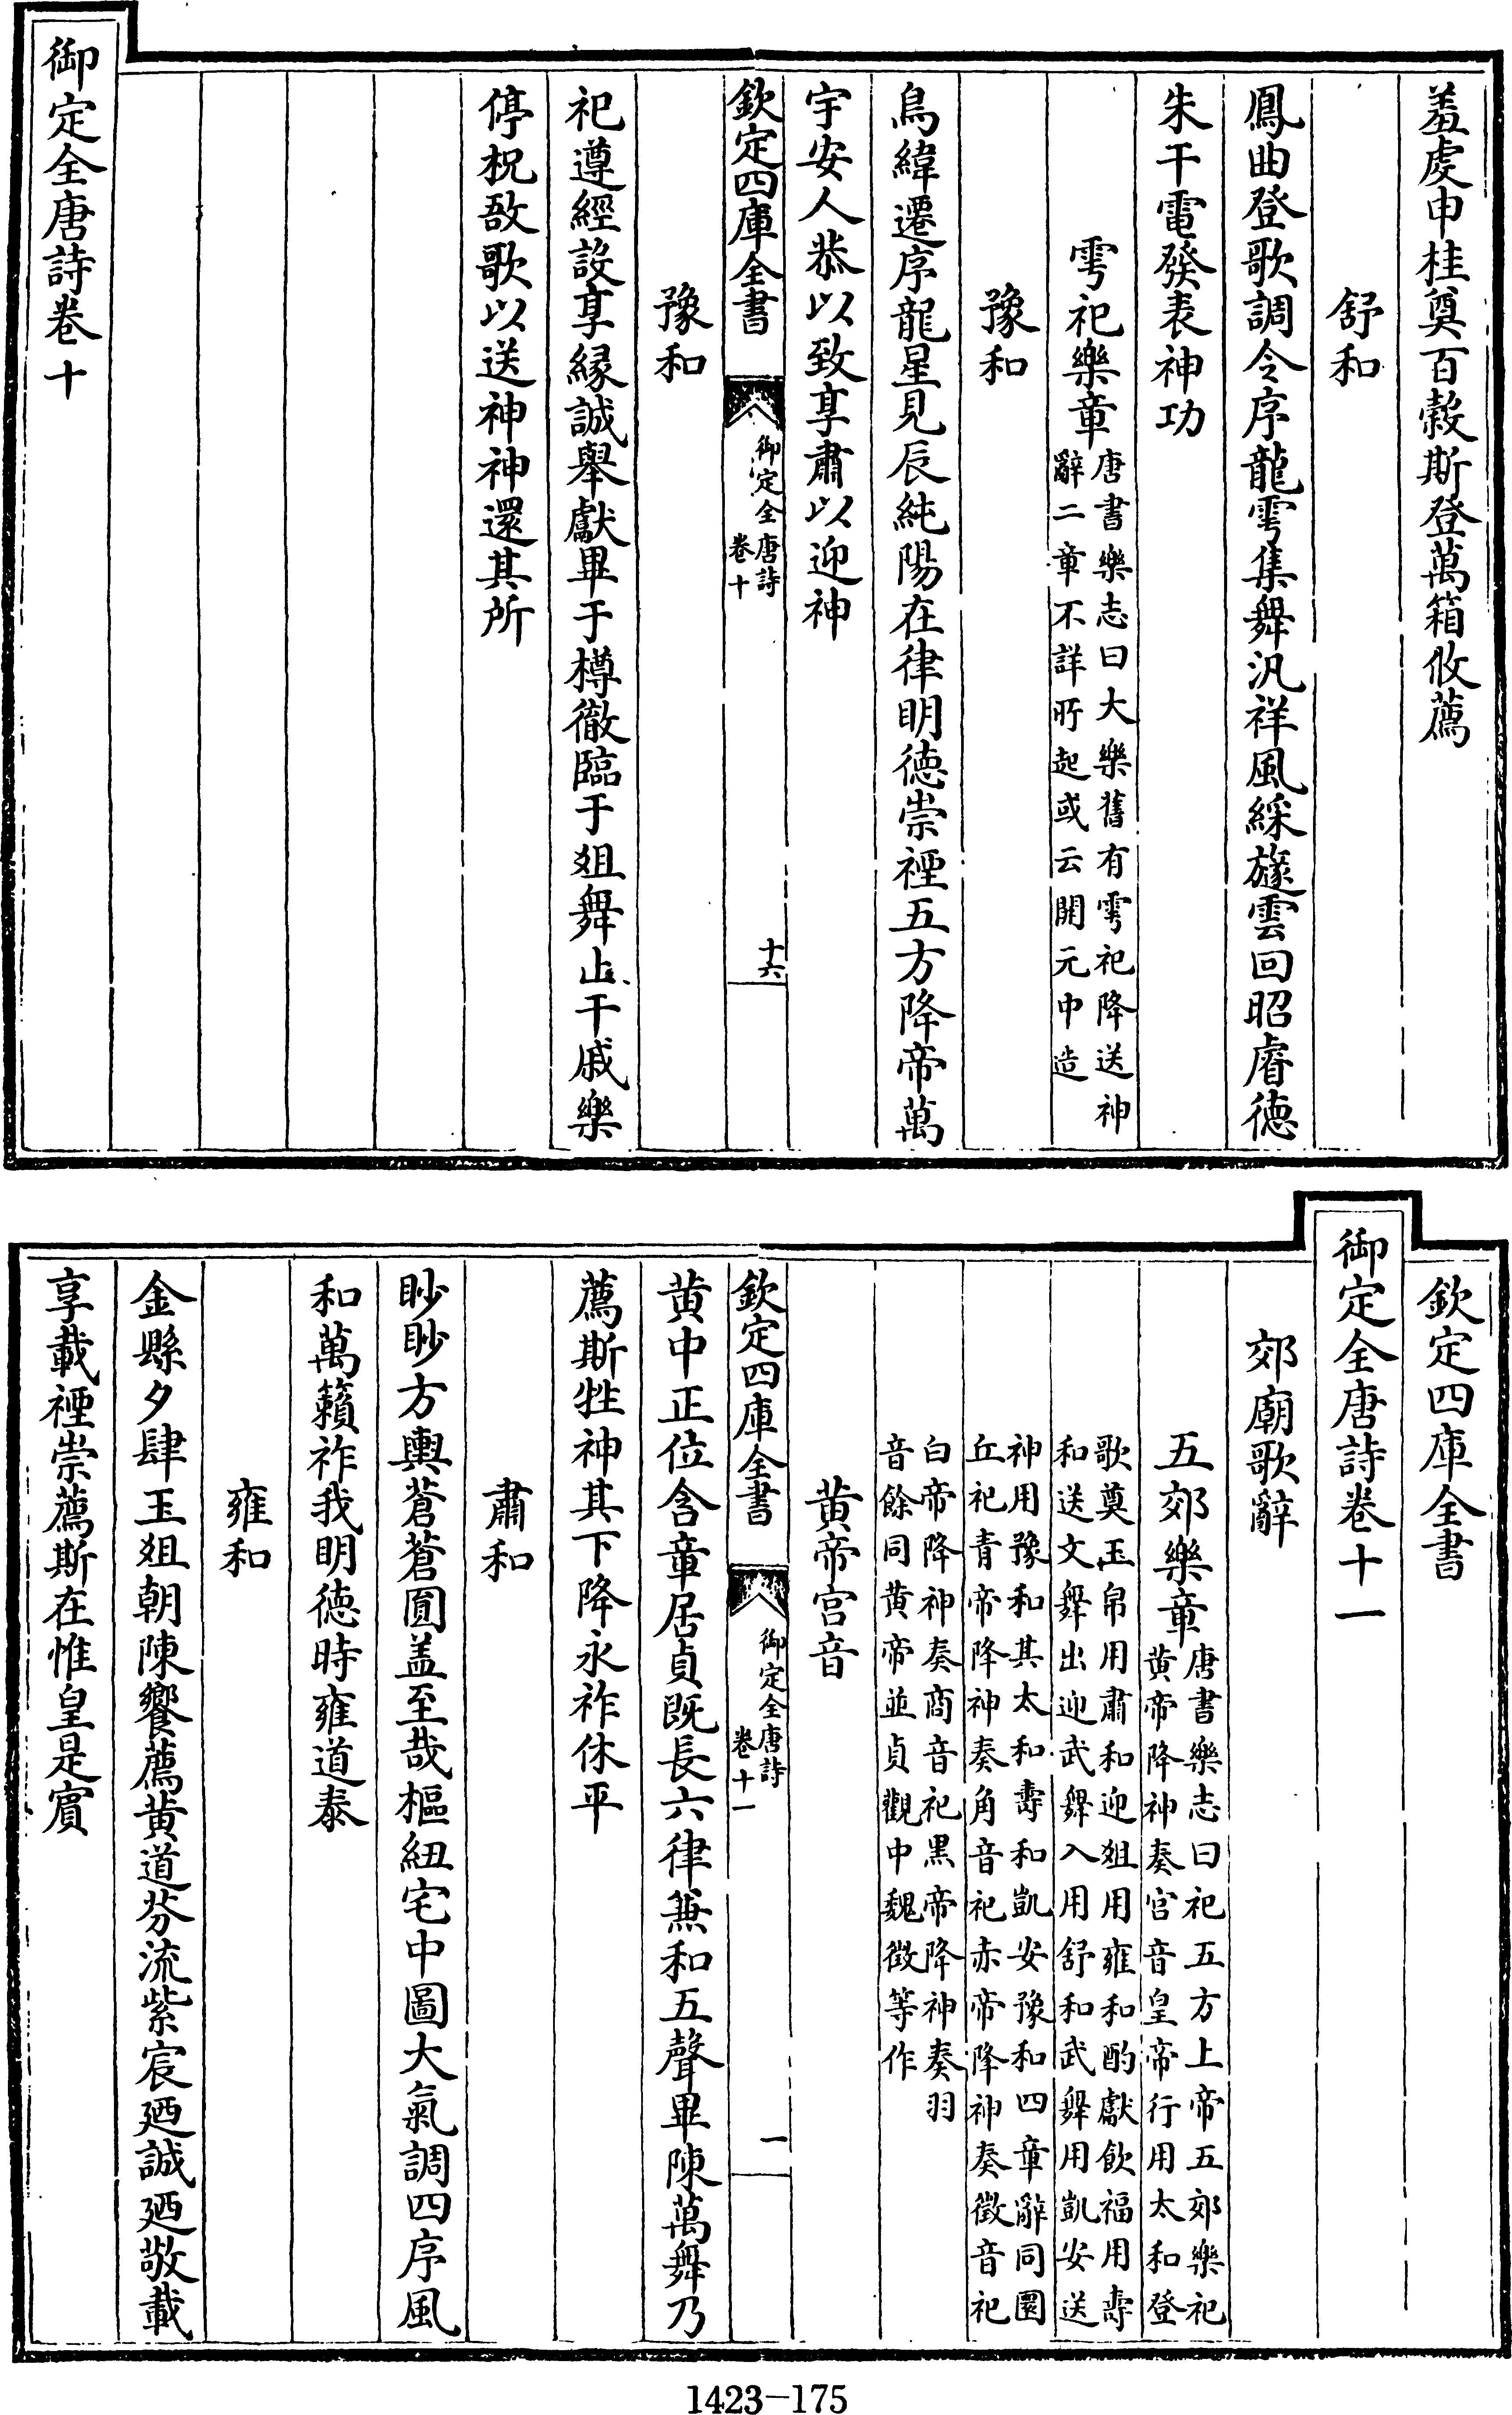 羞虔申桂奠百穀斯登萬箱攸薦
舒和
鳳曲登歌調令序龍雩集舞汎祥風綵旞雲回昭睿徳
朱干電發表神功
雩祀樂章
唐書樂志曰大樂舊有雩祀降送神
辭二章不詳所起或云開元中造
豫和
鳥緯遷序龍星見辰純陽在律明徳崇禋五方降帝萬
宇安人恭以致享肅以迎神
欽定四庫全書
御定全唐詩
卷十
十六
豫和
祀遵經設享縁誠舉獻畢于樽徹臨于俎舞止干戚樂
停柷敔歌以送神神還其所
御定全唐詩卷十
欽定四庫全書
御定全唐詩卷十一
郊廟歌辭
五郊樂章
唐書樂志曰祀五方上帝五郊樂祀
黄帝降神奏宫音皇帝行用太和登
歌奠玉帛用肅和迎俎用雍和酌獻飲福用壽
和送文舞出迎武舞入用舒和武舞用凱安送
神用豫和其太和壽和凱安豫和四章辭同圜
丘祀青帝降神奏角音祀赤帝降神奏徵音祀
白帝降神奏商音祀黑帝降神奏羽
音餘同黄帝並貞觀中魏徵等作
黄帝宫音
欽定四庫全書
御定全唐詩
卷十一
一
黄中正位含章居貞既長六律兼和五聲畢陳萬舞乃
薦斯牲神其下降永祚休平
肅和
眇眇方輿蒼蒼圓盖至哉樞紐宅中圖大氣調四序風
和萬籟祚我明徳時雍道泰
雍和
金縣夕肆玉俎朝陳饗薦黄道芬流紫宸廼誠廼敬載
享載禋崇薦斯在惟皇是賓
1423-175